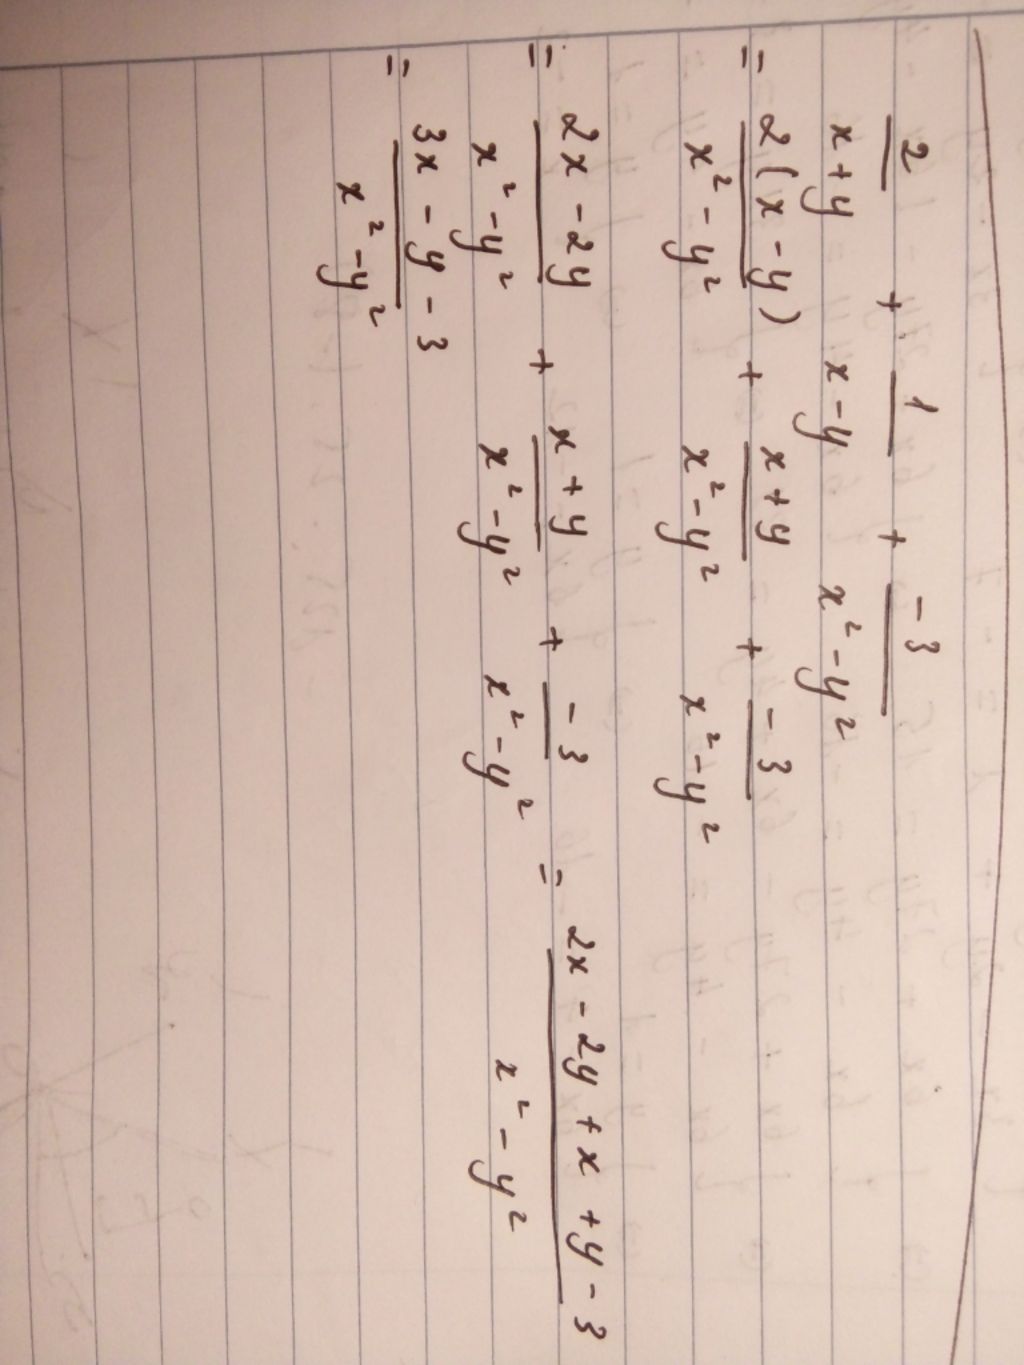 2/(x+y) + 1/(x-y) + -3/(x²-y²)
= 2(x-y)/(x²-y²) + (x+y)/(x²-y²) + -3/(x²-y²)
= (2x-2y)/(x²-y²) + (x+y)/(x²-y²) + -3/(x²-y²) = (2x-2y+x+y-3)/(x²-y²)
= (3x-y-3)/(x²-y²)